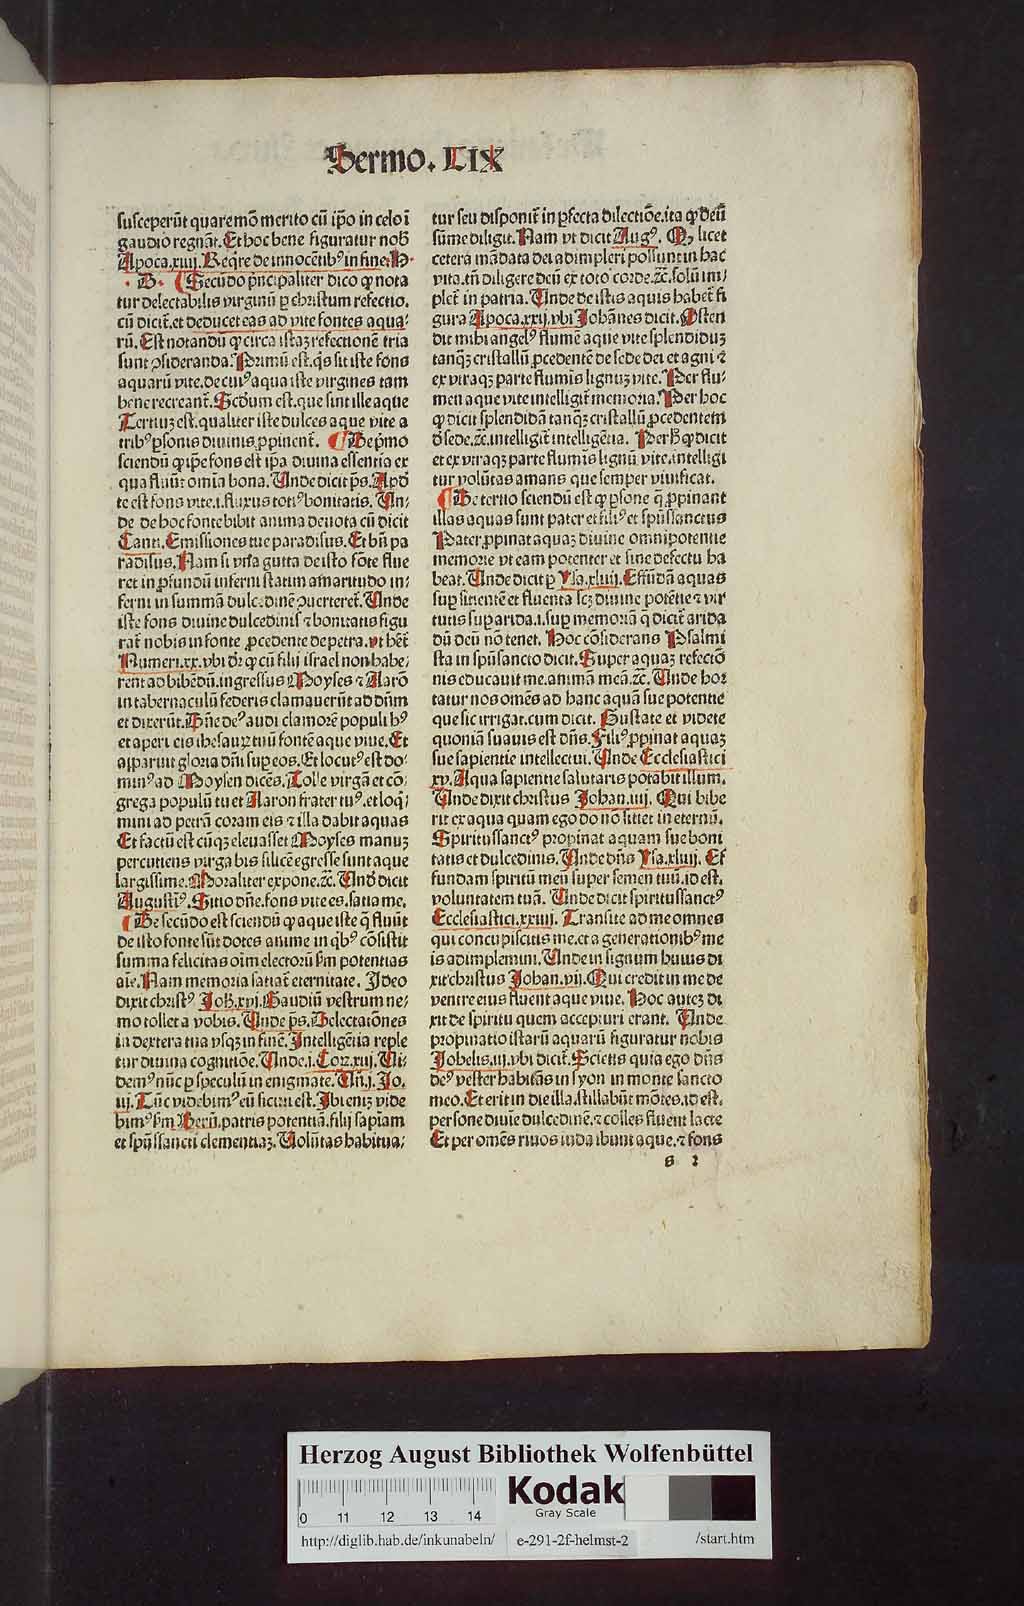 Sermo. LIX
susceperūt quare mō merito cū ip̄o in celo ī
gaudio regnāt. Et hoc bene figuratur nob̄
Apoca.xiiij. Req̄re de innocētibꝰ in fine. P.
.B. ¶ Secūdo prīncipaliter dico ꝙ nota
tur delectabilis virginū ꝑ christum refectio.
cū dicit̄. et deducet eas ad vite fontes aqua-
rū. Est notandū ꝙ circa istaꝫ refectionē tria
sunt ꝯsideranda. Primū est. q̄s sit iste fons
aquarū vite. de cuiꝰ aqua iste virgines tam
bene recreant̄. Scd̄um est. que sunt ille aque
Tertiuꝫ est. qualiter iste dulces aque vite a
tribꝰ ꝑsonis diuinis ꝓpinent̄. ¶ De p̄mo
sciendū ꝙ ip̄e fons est ip̄a diuina essentia ex
qua fluūt om̄ia bona. Unde dicit p̄s. Apd̄
te est fons vite .i. fluxus totiꝰ bonitatis. Un-
de de hoc fonte bibit anima deuota cū dicit
Canti. Emissiones tue paradisus. Et bn̄ pa
radisus. Nam si vna gutta de isto fōte flue
ret in ꝓfundū inferni statim amaritudo in-
ferni in summā dulcedinē ꝯuerteret̄. Unde
iste fons diuine dulcedinis ⁊ bonitatis figu
rat̄ nobis in fonte ꝓcedente de petra. vt het̄
Numeri.xx. vbi dr̄ ꝙ cū filij israel non habe-
rent ad bibēdū. ingressus Moyses ⁊ Aarō
in tabernaculū federis clamauerūt ad dn̄m
et dixerūt. Dn̄e deꝰ audi clamorē populi hꝰ
et aperi eis thesauꝝ tuū fontē aque viue. Et
apparuit gloria dn̄i sup eos. Et locutꝰ est do-
minꝰ ad Moysen dicēs. Tolle virgā et cō-
grega populū tu et Aaron frater tuꝰ. et loq̄
mini ad petrā coram eis ⁊ illa dabit aquas
Et factū est cūqꝫ eleuasset Moyses manuꝫ
percutiens virga bis silicē egresse sunt aque
largissime. Moraliter expone. ⁊c̄. Und̄ dicit
Augustiꝰ. Sitio dn̄e. fons vite es. satia me.
¶ De secūdo est sciendū ꝙ aque iste q̄ fluūt
de isto fonte sūt dotes anime in qb̄ꝰ cōsistit
summa felicitas oīm electorū sm̄ potentias
aīe. Nam memoria satiat̄ eternitate. Ideo
dixit christꝰ Joh̄.xvj. Gaudiū vestrum ne-
mo tollet a vobis. Unde p̄s. Delectatiōnes
in dextera tua vsqꝫ in finē. Intelligētia reple
tur diuina cognitiōe. Unde .j. Cor.xiij. Ui-
demꝰ nūc ꝑ speculū in enigmate. Un̄.j. Jo.
iij. Tūc videbimꝰ eū sicuti est. Ibi enīꝫ vide
bimꝰ sm̄ Bern̄. patris potentiā. filij sapīam
et spūssancti clementiaꝫ. Uolūtas habitua-
tur seu disponit̄ in ꝑfecta dilectiōe. ita ꝙ deū
sūme diligit. Nam vt dicit Augꝰ. Qꝫ licet
cetera mādata dei adimpleri possunt in hac
vita. tn̄ diligere deū ex toto corde. ⁊c̄. solū im-
plet̄ in patria. Unde de istis aquis habet̄ fi
gura Apoca.xxij. vbi Johānes dicit. Osten
dit mihi angelꝰ flumē aque vite splendiduꝫ
tanqꝫ cristallū ꝓcedentē de sede dei et agni ⁊
ex vtraqꝫ parte flumīs lignuꝫ vite. Per flu-
men aque vite intelligit̄ memoria. Per hoc
ꝙ dicit splendidā tanqꝫ cristallū ꝓcedentem
d̄ sede. ⁊c. intelligit̄ intelligētia. Per h̄ ꝙ dicit
et ex vtraqꝫ parte flumīs lignū vite. intelligi
tur volūtas amans que semper viuificat.
¶ De tertio sciendū est ꝙ ꝑsone q̄ ꝓpinant
illas aquas sunt pater et filiꝰ et spūssanctus
Pater ꝓpinat aquaꝫ diuine omnipotentie
memorie vt eam potenter et sine defectu ha
beat. Unde dicit p̄ Ysa.xliiij. Effūdā aquas
suꝑ sitientē et fluenta scꝫ diuine potētie ⁊ vir
tutis suꝑ arida .i. suꝑ memoriā q̄ dicit̄ arida
dū deū nō tenet. Hoc cōsiderans Psalmi
sta in spūsancto dicit. Super aquaꝫ refectō
nis educauit me. animā meā. ⁊c. Unde hor
tatur nos omēs ad hanc aquā sue potentie
que sic irrigat. cum dicit. Gustate et videte
quoniā suauis est dn̄s. Filiꝰ ꝓpinat aquaꝫ
sue sapientie intellectui. Unde Ecclesiastici
xv. Aqua sapientie salutaris potabit illum.
Unde dixit christus Johan.iiij. Qui bibe
rit ex aqua quam ego do nō sitiet in eternū.
Spiritussanctꝰ propinat aquam sue boni
tatis et dulcedinis. Unde dn̄s Ysa.xliiij. Ef
fundam spiritū meū super semen tuū. id est.
voluntatem tuā. Unde dicit spiritussanctꝰ
Ecclesiastici.xxiiij. Transite ad me omnes
qui concupiscitis me. et a generationibꝰ me
is adimplemini. Unde in signum huius di
xit christus Johan.vij. Qui credit in me de
ventre eius fluent aque viue. Hoc autēꝫ di
xit de spiritu quem accepturi erant. Unde
propinatio istarū aquarū figuratur nobis
Johelis.iij. vbi dicit̄. Scietis quia ego dn̄s
deꝰ vester habitās in syon in monte sancto
meo. Et erit in die illa. stillabūt mōtes. id est.
persone diuīe dulcedinē. ⁊ colles fluent lacte
Et per omēs riuos iuda ibunt aque. ⁊ fons
s 2
Herzog August Bibliothek Wolfenbüttel
0 11 12 13 14
Kodak
Gray Scale
http://diglib.hab.de/inkunabeln/ e-291-2f-helmst-2 /start.htm